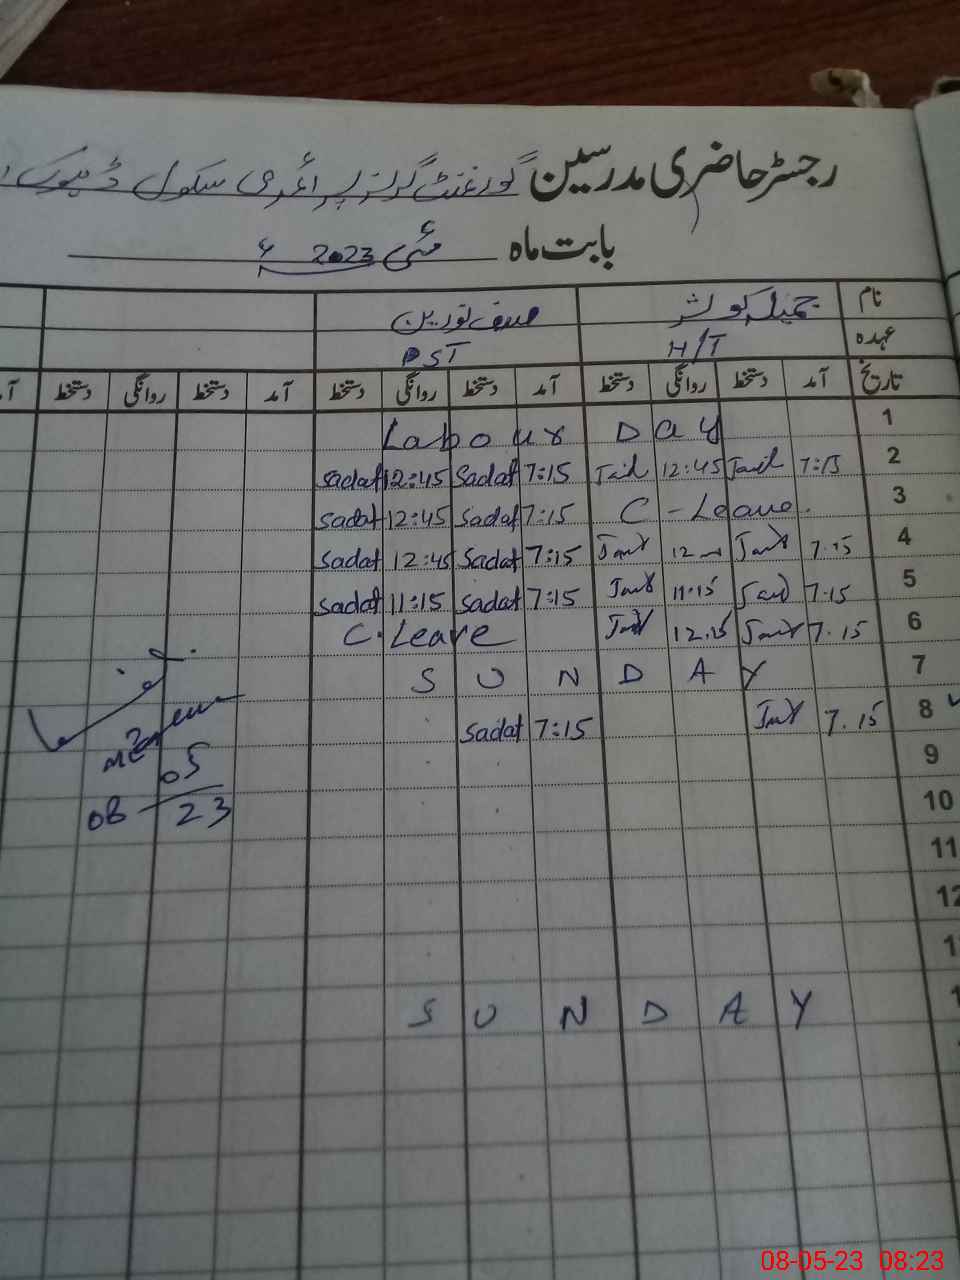 رجسٹر حاضری مدرسین گورنمنٹ گرلز پرائمری سکول
بابت ماہ مئی 2023ء
نام جمیلہ کوثر صدف نورین
عہدہ H/T PST
تاریخ آمد دستخط روانگی دستخط آمد دستخط روانگی دستخط آمد دستخط روانگی دستخط آمد
1 Labour Day
2 7:15 12:45 7:15 Sadaf 12:45 Sadaf
3 C-Leave. 7:15 Sadaf 12:45 Sadaf
4 7.15 7:15 Sadaf 12:45 Sadaf
5 7.15 11.15 7:15 Sadaf 11:15 Sadaf
6 7.15 12.15 C.Leave
7 SUNDAY
8 7.15 7:15 Sadaf
05
08 23
9
10
11
SUNDAY
08-05-23 08:23